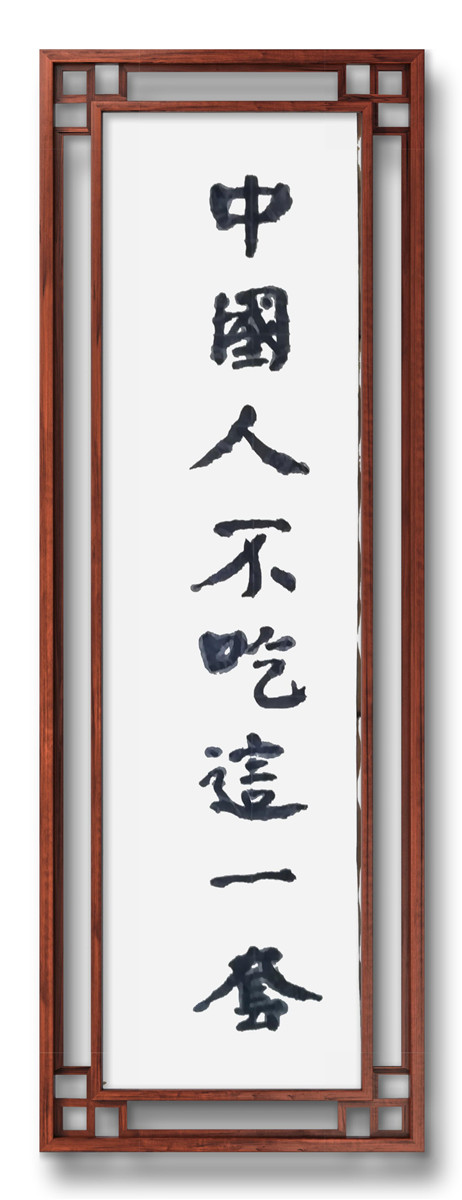 中國人不吃這一套